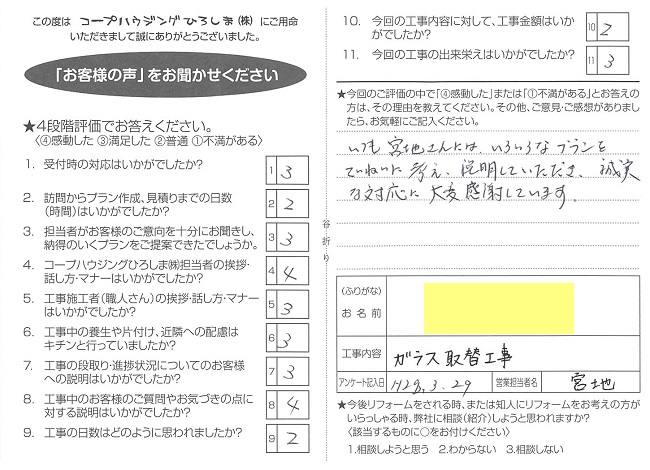 この度は コープハウジングひろしま(株) にご用命
いただきまして誠にありがとうございました。
「お客様の声」をお聞かせください
★4段階評価でお答えください。
〈④感動した ③満足した ②普通 ①不満がある〉
1. 受付時の対応はいかがでしたか?
1 3
2. 訪問からプラン作成、見積りまでの日数
(時間)はいかがでしたか?
2 2
3. 担当者がお客様のご意向を十分にお聞きし、
納得のいくプランをご提案できたでしょうか。
3 3
4. コープハウジングひろしま㈱担当者の挨拶・
話し方・マナーはいかがでしたか?
4 4
5. 工事施工者(職人さん)の挨拶・話し方・マナー
はいかがでしたか?
5 3
6. 工事中の養生や片付け、近隣への配慮は
キチンと行っていましたか?
6 3
7. 工事の段取り・進捗状況についてのお客様
への説明はいかがでしたか?
7 3
8. 工事中のお客様のご質問やお気づきの点に
対する説明はいかがでしたか?
8 4
9. 工事の日数はどのように思われましたか?
9 2
谷折り
10. 今回の工事内容に対して、工事金額はいか
がでしたか?
10 2
11. 今回の工事の出来栄えはいかがでしたか?
11 3
★今回のご評価の中で「④感動した」または「①不満がある」とお答えの
方は、その理由を教えてください。その他、ご意見・ご感想がありました
ら、お気軽にご記入ください。
いつも 宮地さんには、いろいろなプランを
ていねいに 考え、説明していただき、誠実
な対応に 大変感謝しています。
(ふりがな)
お名前
工事内容 ガラス取替工事
アンケート記入日 H29.3.29 営業担当者名 宮地
★今後リフォームをされる時、または知人にリフォームをお考えの方が
いらっしゃる時、弊社に相談(紹介)しようと思われますか?
〈該当するものに○をお付けください〉
1.相談しようと思う 2.わからない 3.相談しない